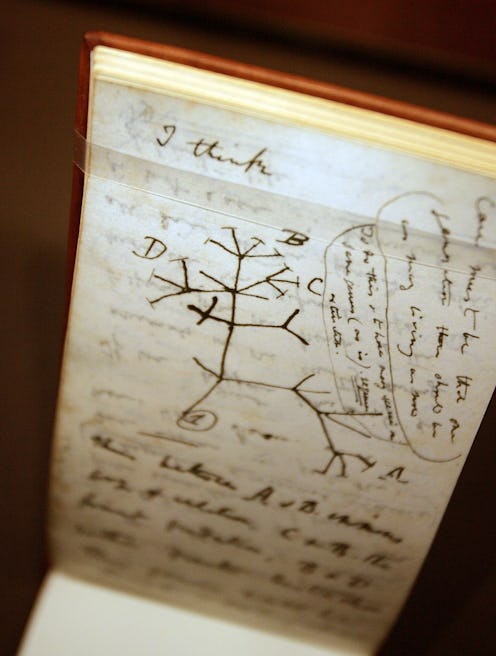 I think
D
B
C
A
1
Case must be that one
generation then should be
as many living as now
To do this & to have many species in
same genus (as is) requires
extinction.
Thus between A & B. immense
gap of relation. C & B. the
finest gradation, B & D
rather greater distinction